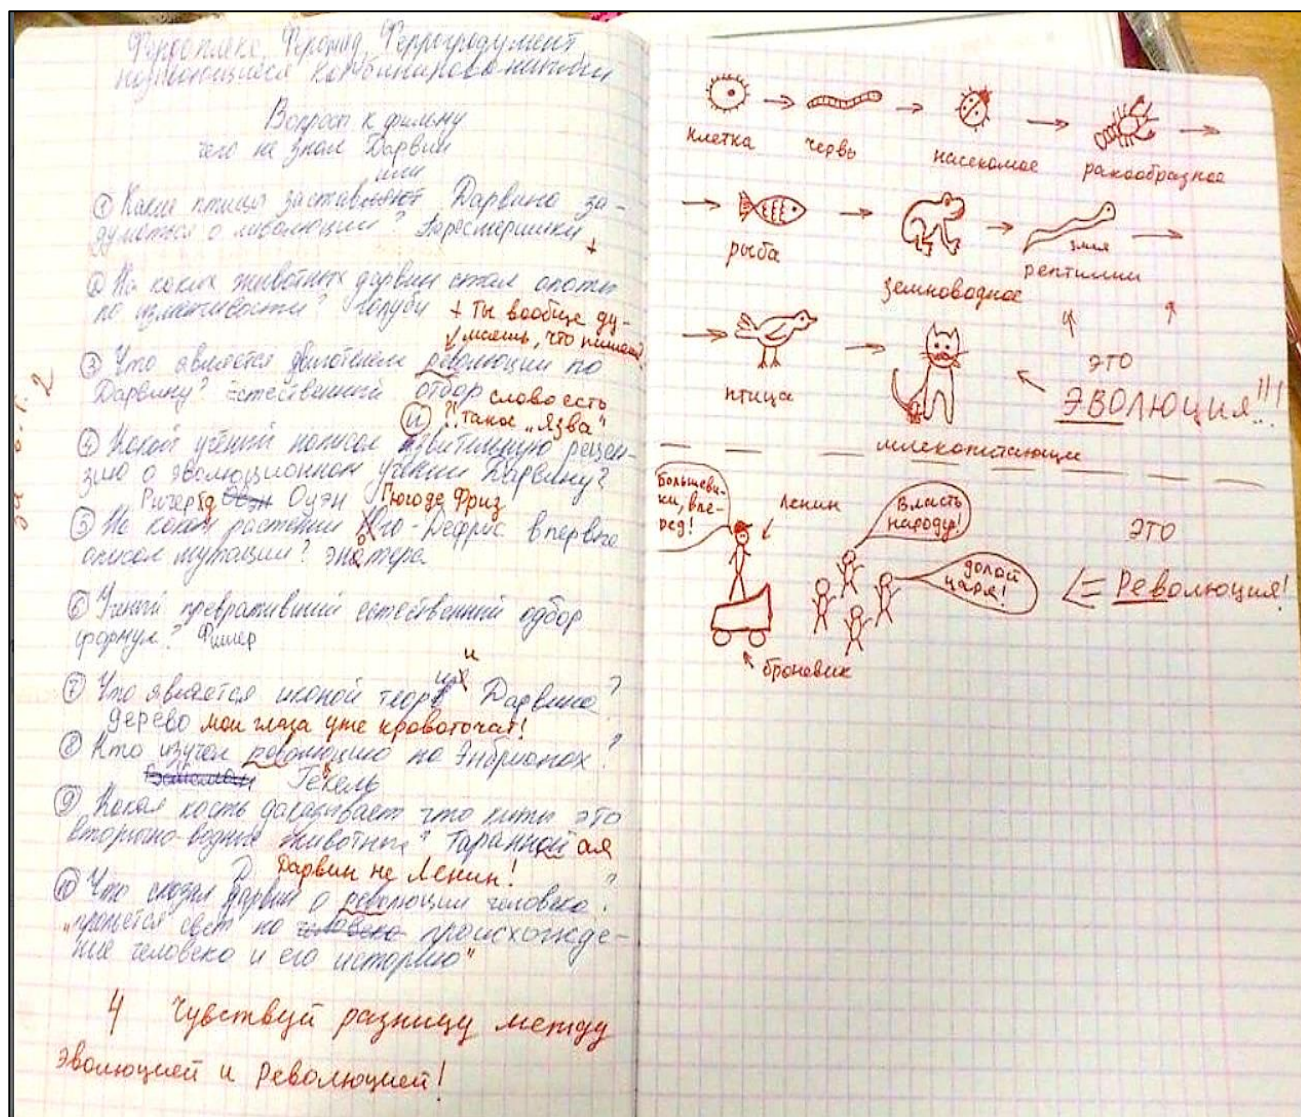 Вопросы к фильму
чего не знал Дарвин
или
① Какие птицы заставляют Дарвина за-
думаться о
+
② На каких животных дарвин ставил опыты
по изменчивости? голуби + Ты вообще ду-
маешь, что пишешь?
③ Что является двигателем революции по
Дарвину? Естественный отбор слово есть
и ?! такое „Язва"
④ Какой учёний написал язвительную рецен-
зию о эволюционном учении Дарвину?
Ричард Оуэн Гюго де Фриз
⑤ На каком растении Юго-Дефрис впервые
описал мутации? энотера
⑥ Учёный превративший естественный одбор
формул? Фишер
⑦ Что является иконой теории Дарвина?
дерево мои глаза уже кровоточат!
⑧ Кто изучал революцию на Энбрионах?
Геккель
⑨ Какая кость даказывает что киты это
вторично-водные животные? Таранной ая
Дарвин не Ленин!
⑩ Что сказал дарвин о революции человека?
„прольётся свет на происхожде-
ние человека и его историю"
4 Чувствуй разницу между
Эволюцией и Революцией!
клетка червь насекомое ракообразное
рыба земноводное змея
рептилии
птица
это
Эволюция!!!
млекопитающие
Большеви-
ки, впе-
ред!
Ленин
Власть
народу!
долой
царя!
это
<= Революция!
броневик